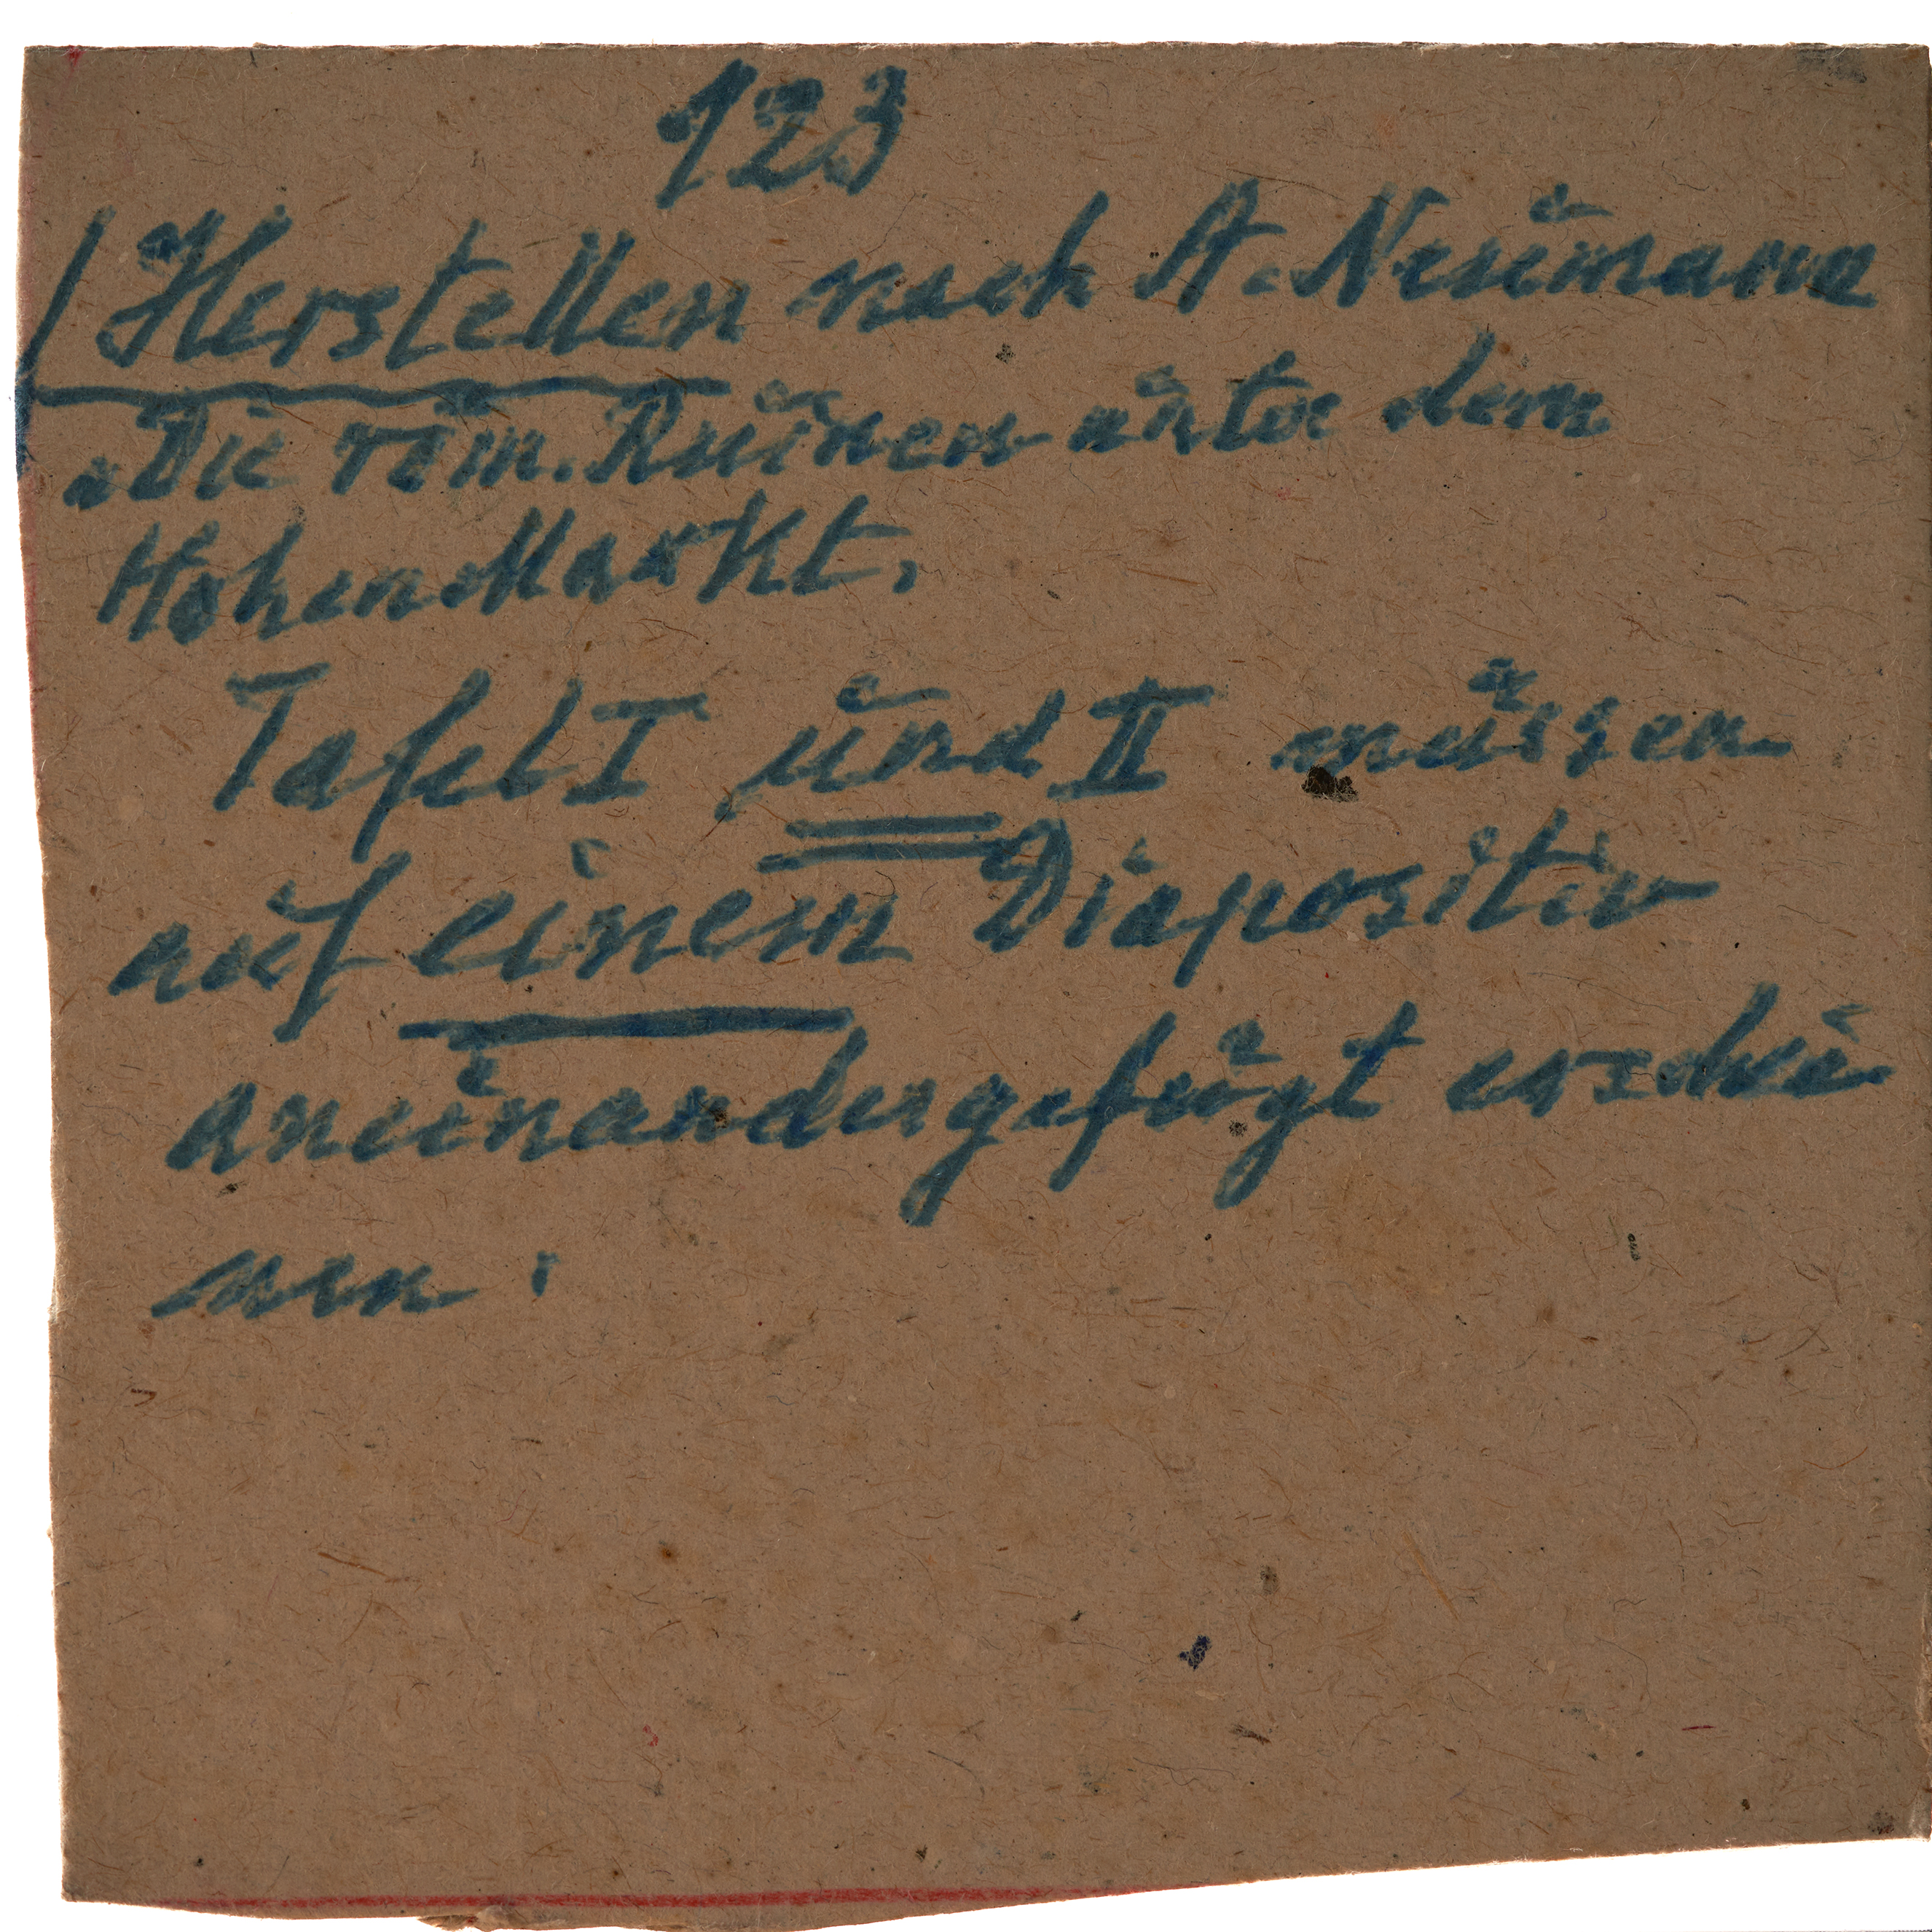 123
Herstellen nach A. Neumann
„Die röm. Ruinen unter dem
Hohen Markt,
Tafel I und II müssen
auf einem Diapositiv
aneinandergefügt erschei-
nen.